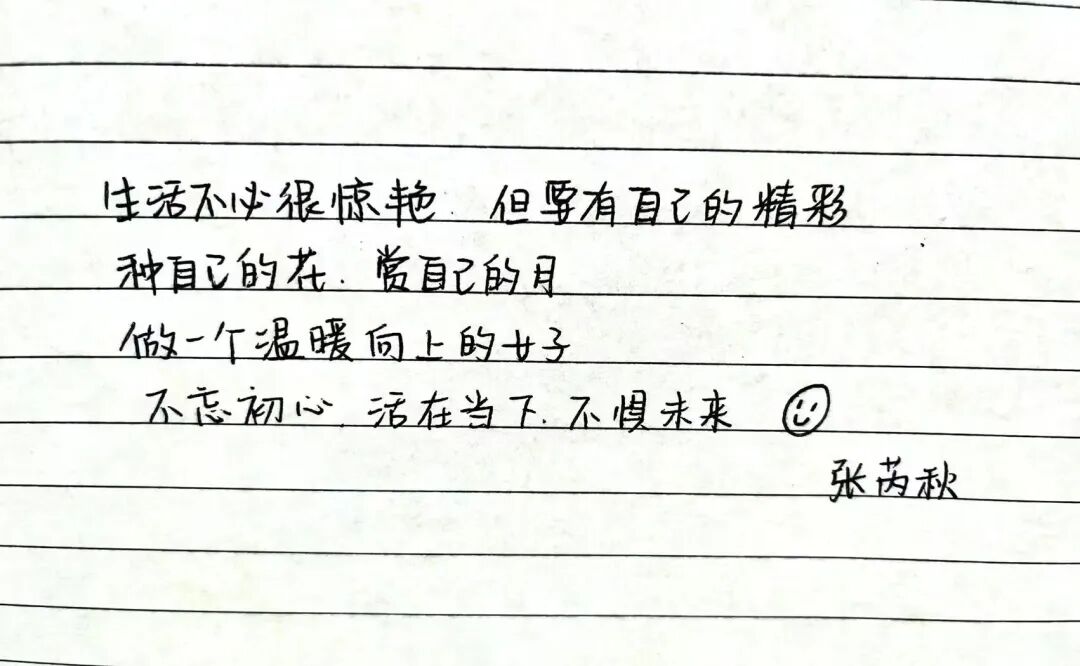 生活不必很惊艳.但要有自己的精彩
种自己的花.赏自己的月
做一个温暖向上的女子
不忘初心.活在当下.不惧未来
张芮秋